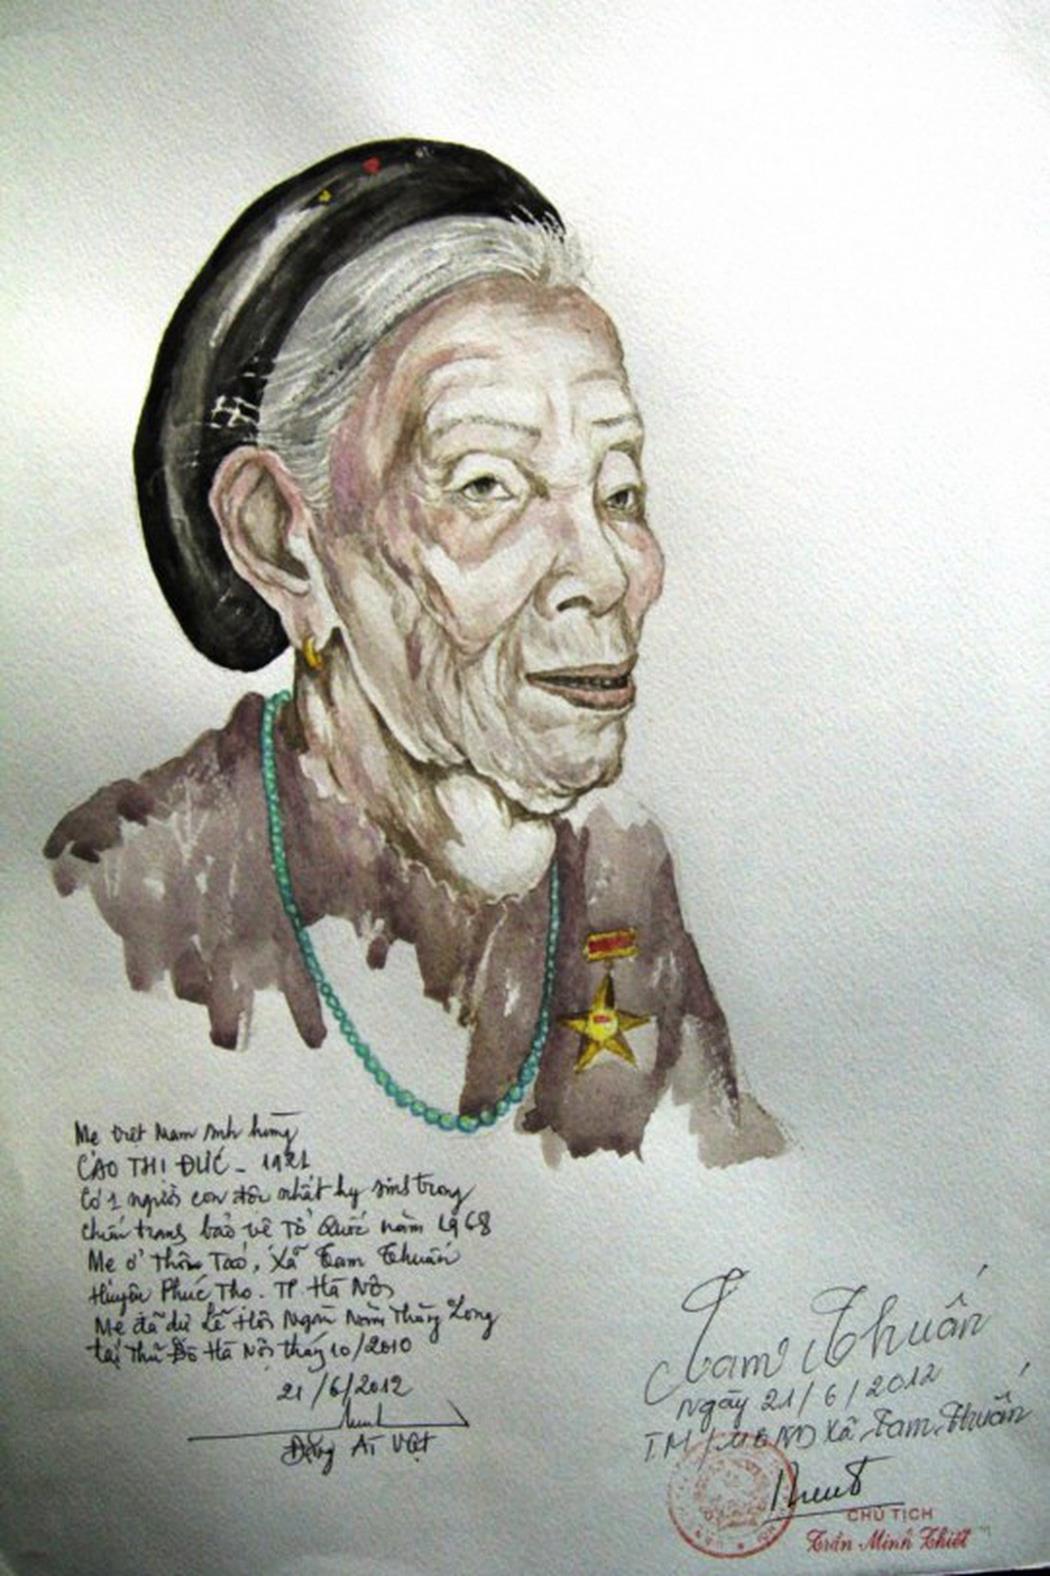 Mẹ Việt Nam anh hùng
CAO THỊ ĐỨC - 1921
Có 1 người con độc nhất hy sinh trong
chiến tranh bảo vệ Tổ Quốc năm 1968
Mẹ ở Thôn Táo, Xã Tam Thuấn
Huyện Phúc Thọ. TP. Hà Nội
Mẹ đã dự Lễ Hội Ngàn Năm Thăng Long
tại Thủ Đô Hà Nội tháng 10/2010
21/6/2012
Đặng Ái Việt
Tam Thuấn
ngày 21/6/2012
TM/UBND Xã Tam Thuấn
CHỦ TỊCH
Trần Minh Thiết